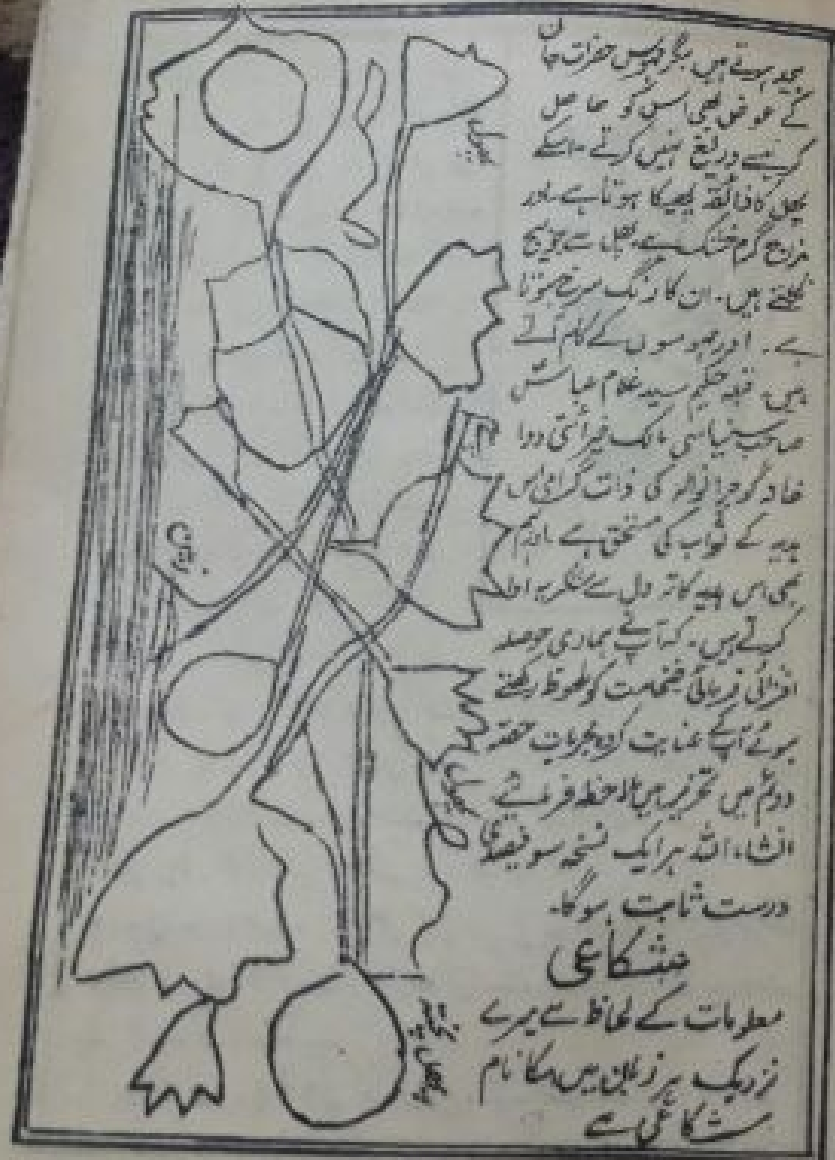 بچد ہوتے ہیں مگر ہوس حضرت جان
کے عوض بھی اس کو حاصل
کرنیسے دریغ نہیں کرتے۔ اسکے
پھل کا ذائقہ پھیکا ہوتا ہے۔ اور
مزاج گرم خشک ہے۔ پھل سے جو بیج
نکلتے ہیں۔ ان کا رنگ سرخ ہوتا
ہے۔ اور کے کام آتے
ہیں۔ قبلہ حکیم سید غلام عباس
صاحب سنیاسی مالک دوا
خانہ گوجرانوالہ کی ذات گرامی اس
ہدیہ کے ثواب کی مستحق ہے۔ اور ہم
بھی اس ہدیہ کا تہ دل سے شکریہ ادا
کرتے ہیں۔ کہ آپ نے ہماری حوصلہ
افزائی فرمائی ضخامت کو ملحوظ رکھتے
ہوئے آپ کے عنایت کردہ مجربات حصہ
دوئم میں تحریر ہیں ملاحظہ فرمائیے
انشاء اللہ ہر ایک نسخہ سو فیصدی
درست ثابت ہوگا۔
مشکاعی
معلومات کے لحاظ سے میرے
نزدیک ہر زبان میں اسکا نام
شکاعی ہے
پھول
پھل